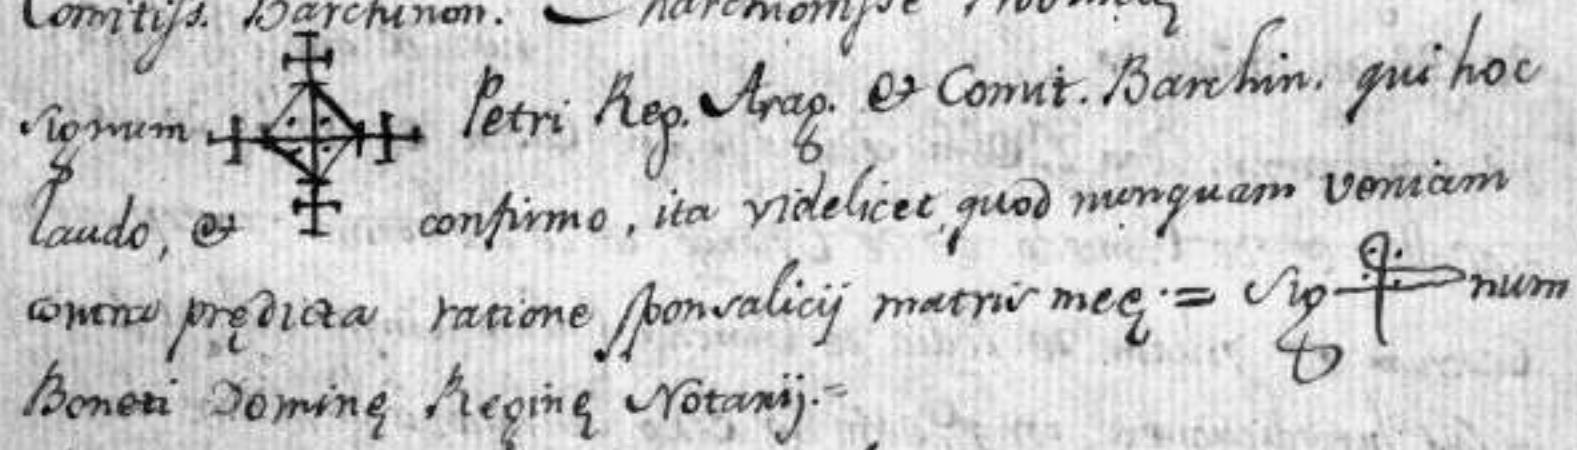 Comitiss. Barchinon. Marchionisse Provincię
signum Petri Reg. Arag. & Comit. Barchin. qui hoc
laudo, & confirmo, ita videlicet quod nunquam veniam
contra prędicta ratione sponsalicij matris meę.= Sig num
Boneti Dominę Reginę Notarij.=